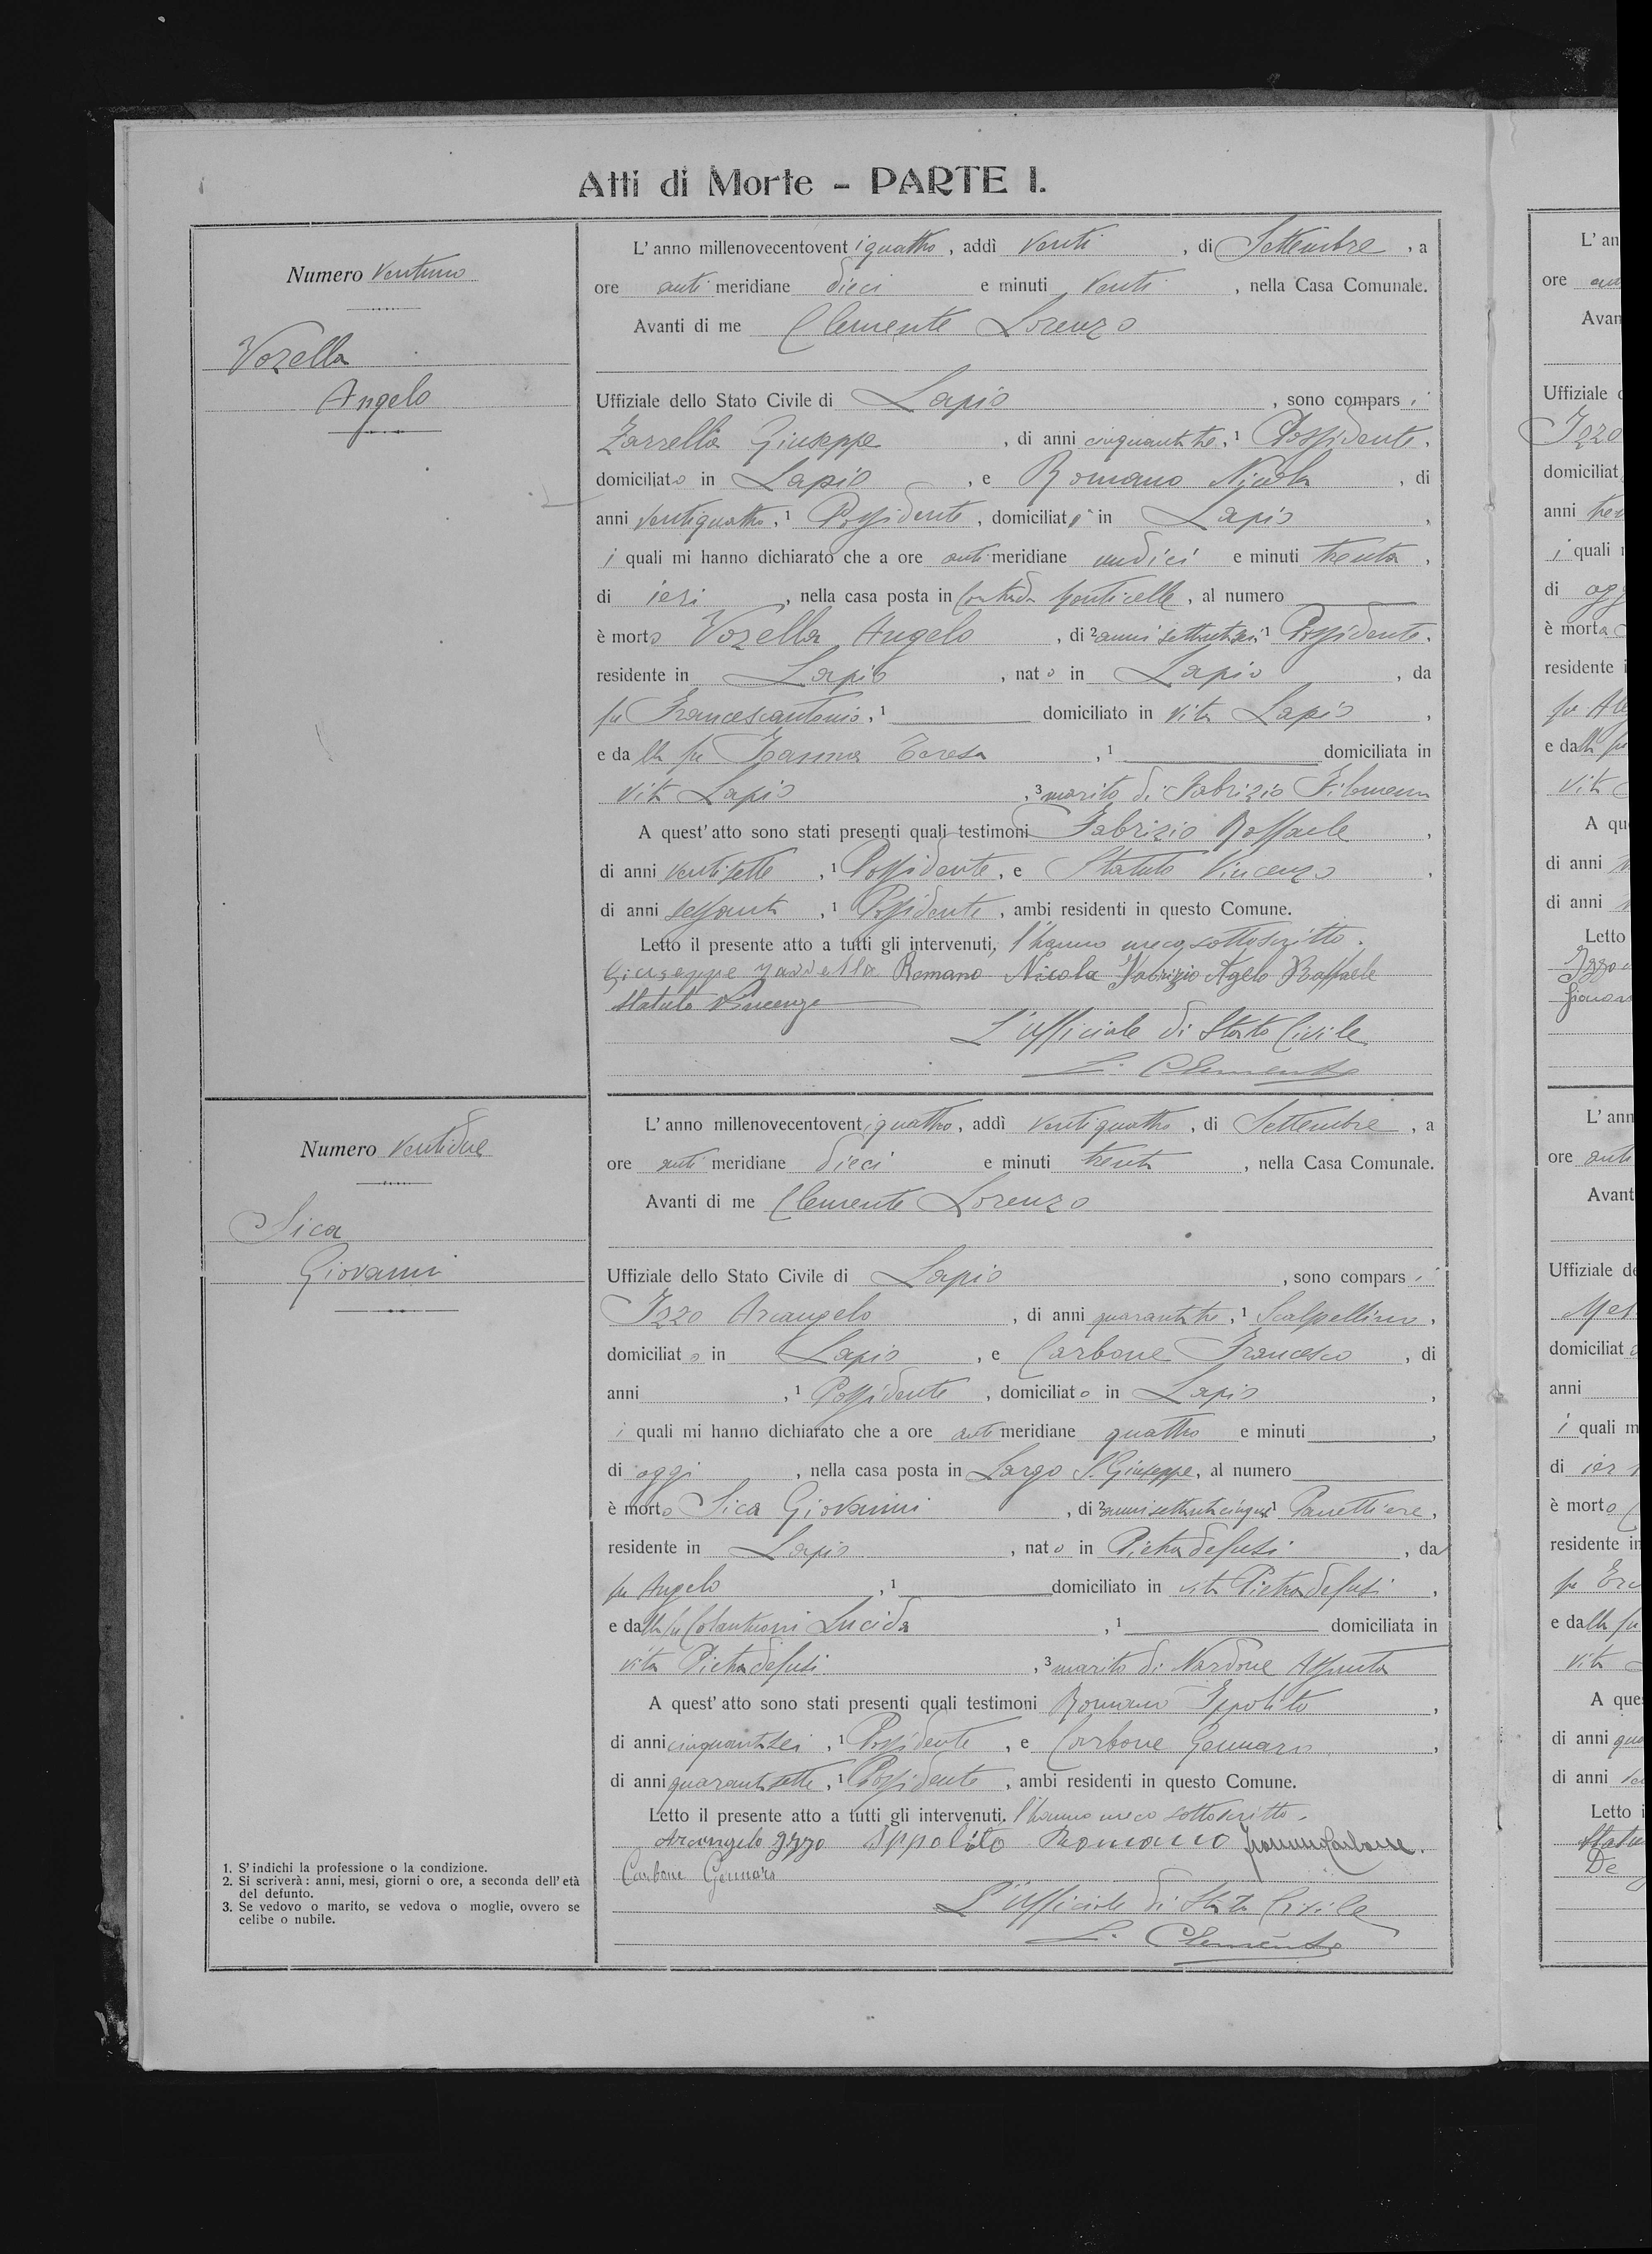 Atti di Morte - PARTE I.
Numero Ventuno
Vozella
Angelo
L'anno millenovecentoventiquattro, addì Venti, di Settembre, a
ore antimeridiane dieci e minuti Venti, nella Casa Comunale.
Avanti di me Clemente Lorenzo
Uffiziale dello Stato Civile di Lapio, sono comparsi
Zarrella Giuseppe, di anni cinquantatre, 1 Possidente,
domiciliato in Lapio, e Romano Nicola, di
anni Ventiquattro, 1 Possidente, domiciliato in Lapio,
i quali mi hanno dichiarato che a ore antimeridiane undici e minuti trenta,
di ieri, nella casa posta in Contrada Monticelle, al numero
è morto Vozella Angelo, di 2 anni settantasei 1 Possidente,
residente in Lapio, nato in Lapio, da
fu Francescantonio, 1 domiciliato in vita Lapio,
e dalla fu Teresa, 1 domiciliata in
vita Lapio, 3 marito di Fabrizio Filomena
A quest'atto sono stati presenti quali testimoni Fabrizio Raffaele,
di anni ventisette, 1 Possidente, e Statuto Vincenzo,
di anni sessanta, 1 Possidente, ambi residenti in questo Comune.
Letto il presente atto a tutti gli intervenuti, l'hanno meco sottoscritto.
Giuseppe Zarrella Romano Nicola Fabrizio Agelo Raffaele
Statuto Vincenzo
L'Ufficiale di Stato Civile
L. Clemente
Numero Ventidue
Sica
Giovanni
L'anno millenovecentoventiquattro, addì Ventiquattro, di Settembre, a
ore antimeridiane dieci e minuti trenta, nella Casa Comunale.
Avanti di me Clemente Lorenzo
Uffiziale dello Stato Civile di Lapio, sono comparsi
Izzo Arcangelo, di anni quarantatre, 1 Scalpellino,
domiciliato in Lapio, e Carbone Francesco, di
anni , 1 Possidente, domiciliato in Lapio,
i quali mi hanno dichiarato che a ore antimeridiane quattro e minuti ,
di oggi, nella casa posta in Largo S. Giuseppe, al numero
è morto Sica Giovanni, di 2 anni settantacinque 1 Panettiere,
residente in Lapio, nato in Pietradefusi, da
fu Angelo, 1 domiciliato in vita Pietradefusi,
e dalla fu Colantuoni Lucida, 1 domiciliata in
vita Pietradefusi, 3 marito di Nardone Assunta
A quest'atto sono stati presenti quali testimoni Romano Ippolito,
di anni cinquantasei, 1 Possidente, e Carbone Gennaro,
di anni quarantasette, 1 Possidente, ambi residenti in questo Comune.
Letto il presente atto a tutti gli intervenuti, l'hanno meco sottoscritto.
Arcangelo Izzo Ippolito Romano
Carbone Gennaro
L'Ufficiale di Stato Civile
L. Clemente
1. S'indichi la professione o la condizione.
2. Si scriverà: anni, mesi, giorni o ore, a seconda dell'età
del defunto.
3. Se vedovo o marito, se vedova o moglie, ovvero se
celibe o nubile.
L'an
ore
Avan
Uffiziale
Izzo
domiciliat
anni
i quali
di ogg
è morta
residente
fu
e dalla fu
vita
A qu
di anni
di anni
Letto
L'ann
ore anti
Avant
Uffiziale de
domiciliat
anni
i quali m
di ier
è morto
residente in
fu
e dalla fu
vita
A que
di anni
di anni
Letto i
De